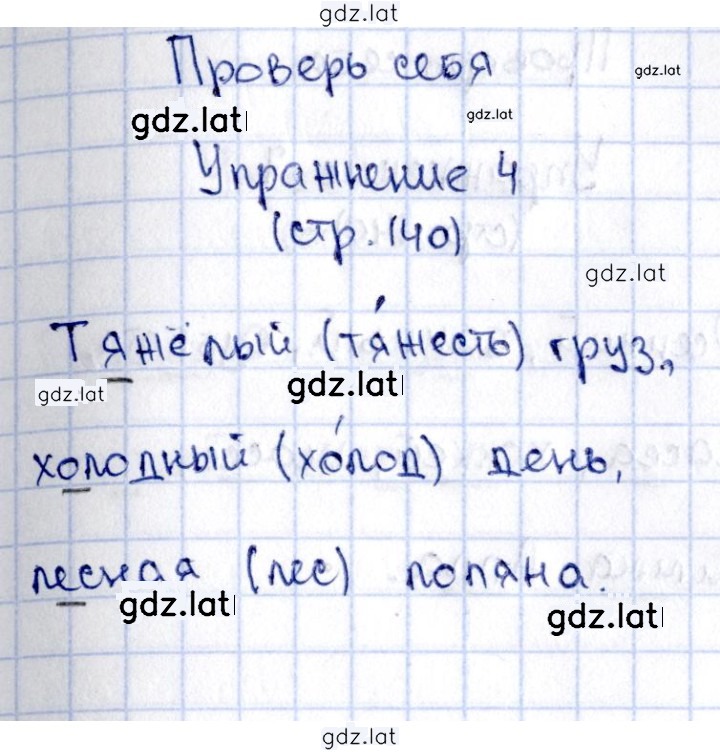 gdz.lat
Проверь себя
gdz.lat
gdz.lat
gdz.lat
Упражнение 4
(стр. 140)
gdz.lat
Тяжёлый (тя́жесть) груз.,
gdz.lat
gdz.lat
холодный (хо́лод) день,
лесная (лес) поляна.
gdz.lat
gdz.lat
gdz.lat